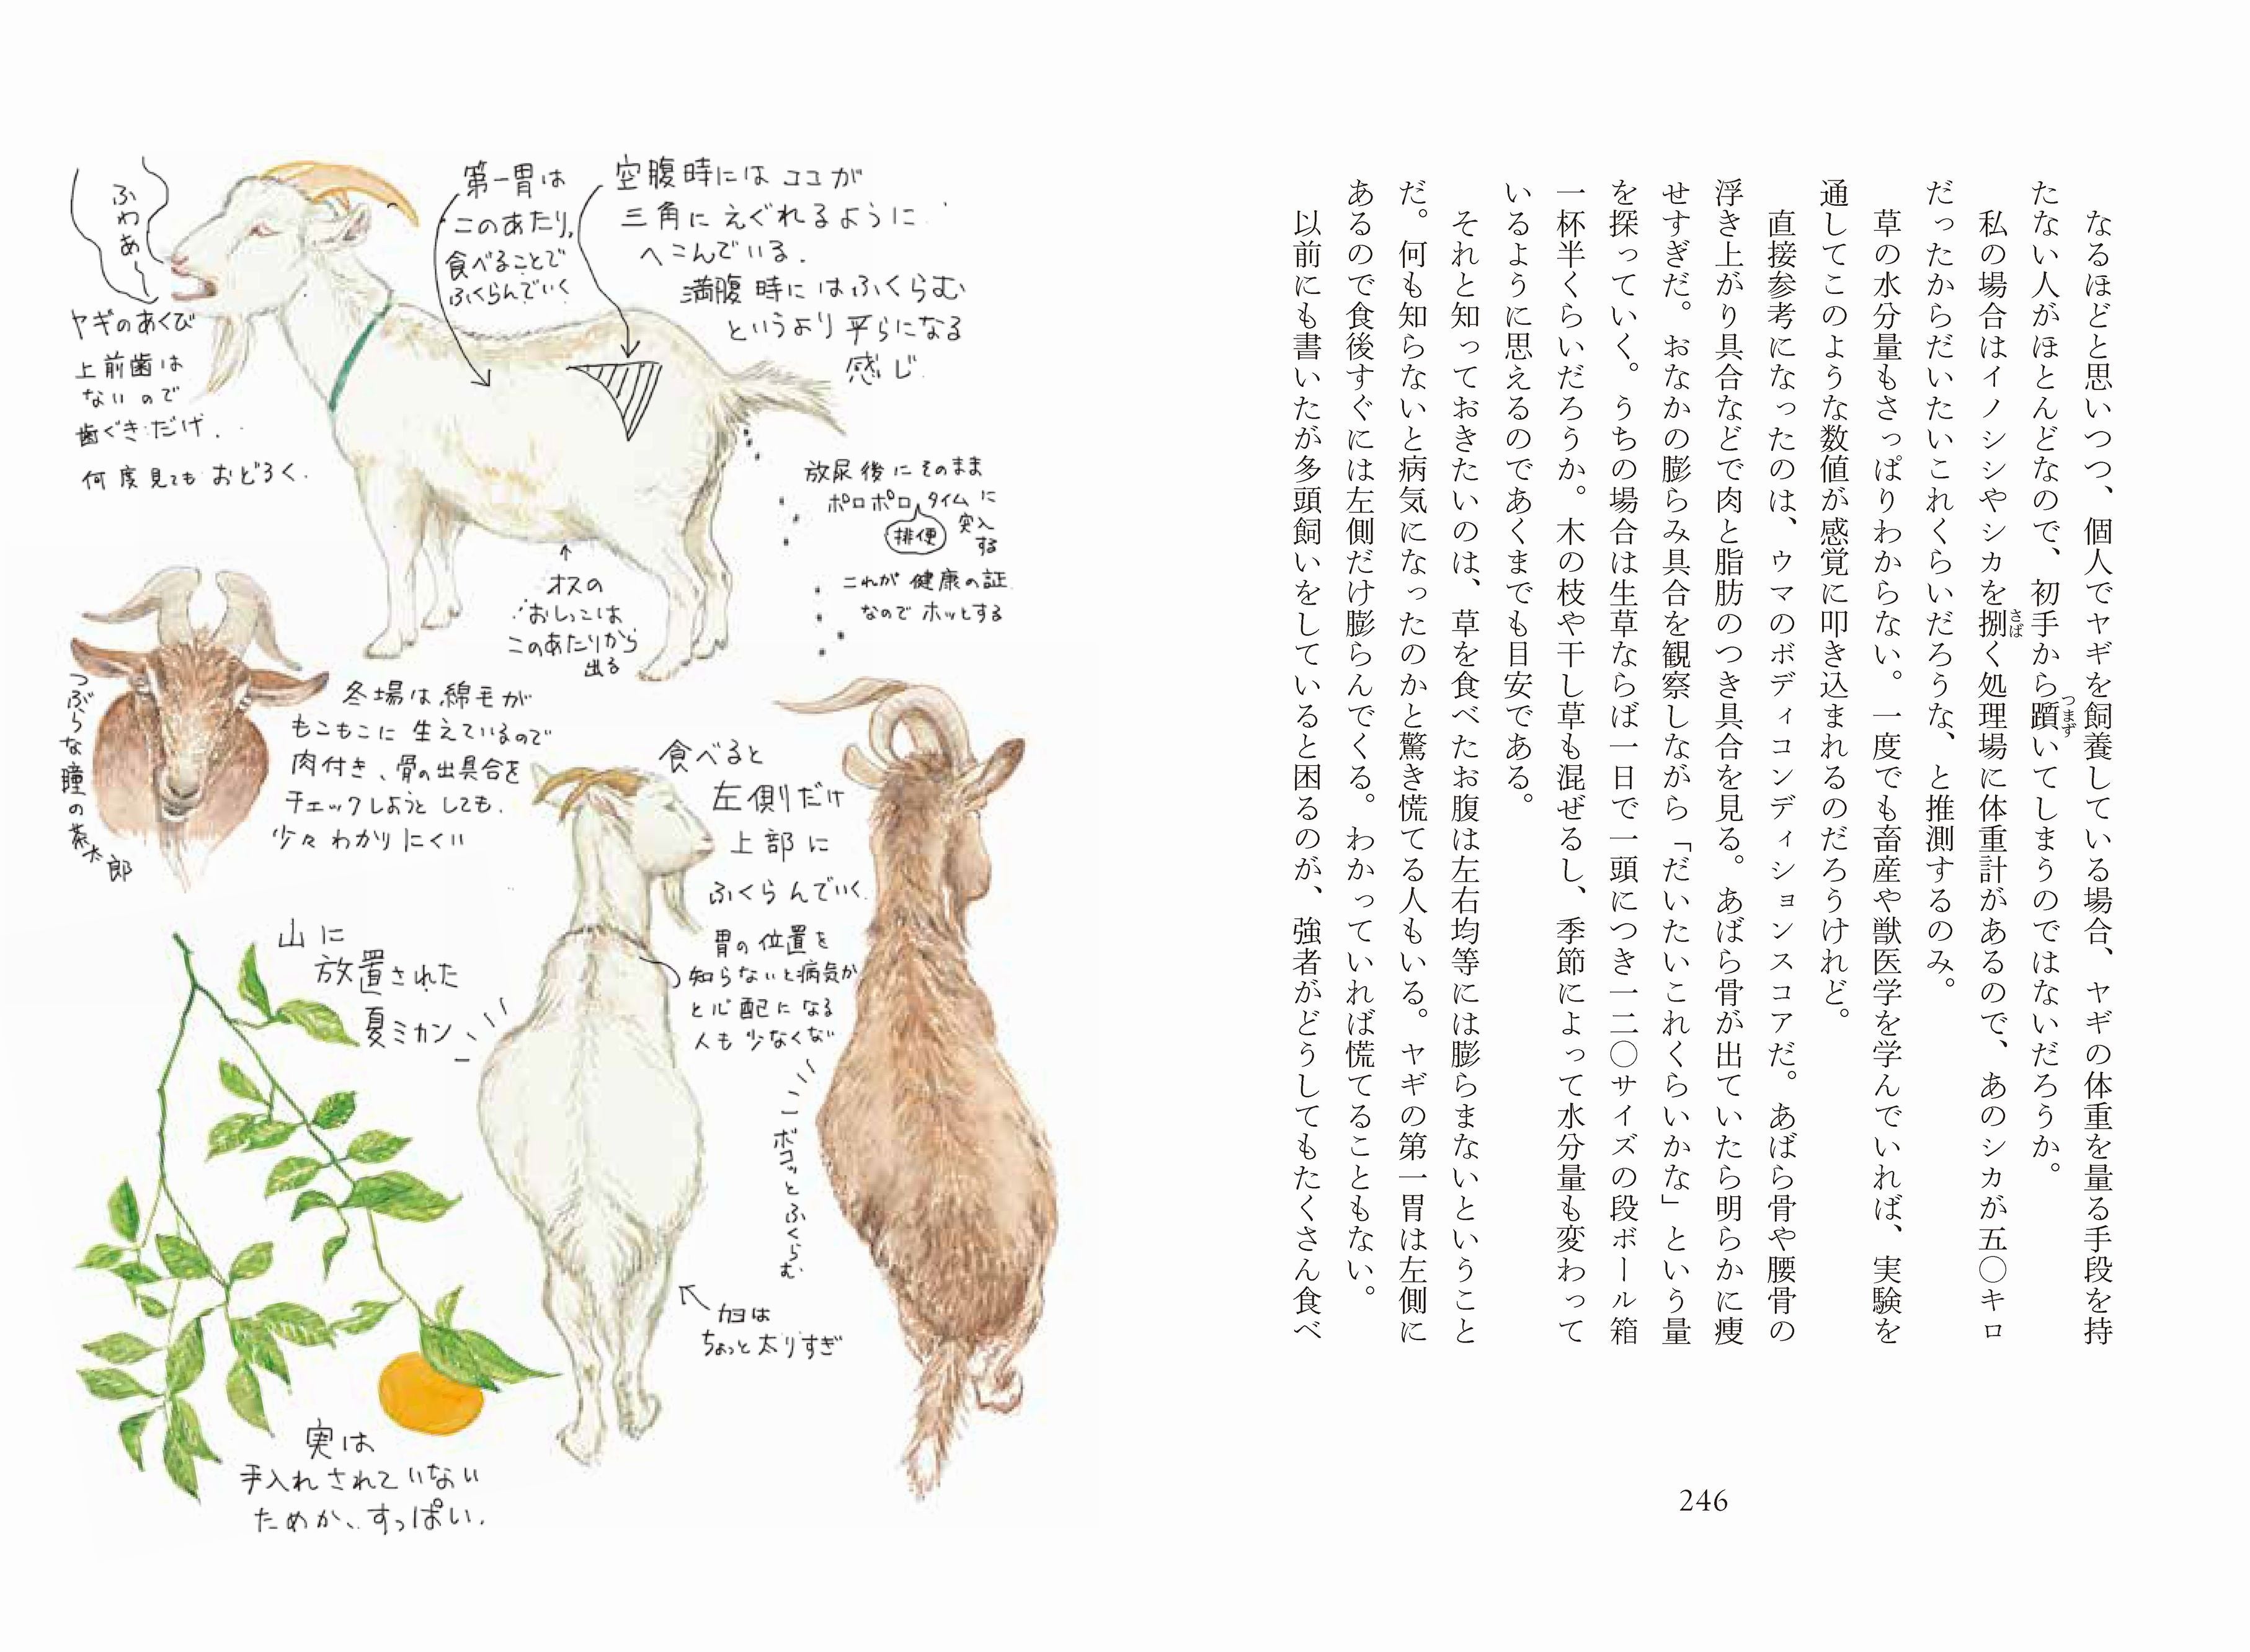 なるほどと思いつつ、個人でヤギを飼養している場合、ヤギの体重を量る手段を持
たない人がほとんどなので、初手から躓いてしまうのではないだろうか。
つまず
私の場合はイノシシやシカを捌く処理場に体重計があるので、あのシカが五〇キロ
さば
だったからだいたいこれくらいだろうな、と推測するのみ。
草の水分量もさっぱりわからない。一度でも畜産や獣医学を学んでいれば、実験を
通してこのような数値が感覚に叩き込まれるのだろうけれど。
直接参考になったのは、ウマのボディコンディションスコアだ。あばら骨や腰骨の
浮き上がり具合などで肉と脂肪のつき具合を見る。あばら骨が出ていたら明らかに痩
せすぎだ。おなかの膨らみ具合を観察しながら「だいたいこれくらいかな」という量
を探っていく。うちの場合は生草ならば一日で一頭につき一二〇サイズの段ボール箱
一杯半くらいだろうか。木の枝や干し草も混ぜるし、季節によって水分量も変わって
いるように思えるのであくまでも目安である。
それと知っておきたいのは、草を食べたお腹は左右均等には膨らまないということ
だ。何も知らないと病気になったのかと驚き慌てる人もいる。ヤギの第一胃は左側に
あるので食後すぐには左側だけ膨らんでくる。わかっていれば慌てることもない。
以前にも書いたが多頭飼いをしていると困るのが、強者がどうしてもたくさん食べ
246
空腹時にはココが
三角にえぐれるように
へこんでいる.
満腹時にはふくらむ
というより平らになる
感じ
第一胃は
このあたり,
食べることで
ふくらんでいく
ふわあ〜
ヤギのあくび
上前歯は
ないので
歯ぐきだけ..
何度見てもおどろく.
放尿後にそのまま
ポロポロタイムに
排便
突入
する
これが健康の証
なのでホッとする
オスの
おしっこは
このあたりから
出る
つぶらな瞳の茶太郎
冬場は綿毛が
もこもこに生えているので
肉付き、骨の出具合を
チェックしようとしても.
少々わかりにくい
食べると
左側だけ
上部に
ふくらんでいく.
胃の位置を
知らないと病気か
と心配になる
人も少なくない
ボコッとふくらむ
カヨは
ちょっと太りすぎ
山に
放置された
夏ミカン
実は
手入れされていない
ためか、すっぱい.